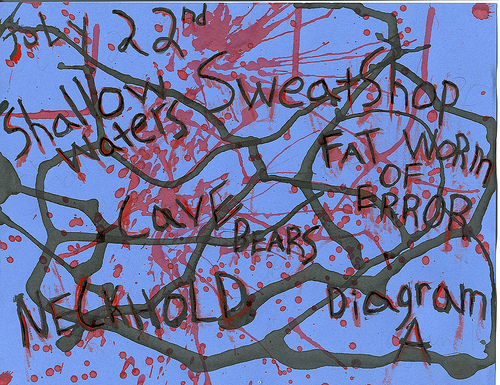 July 22nd
Shallow
Waters
SweatShop
FAT WORM
OF
ERROR
CAVE
BEARS
NECKHOLD
Diagram
A